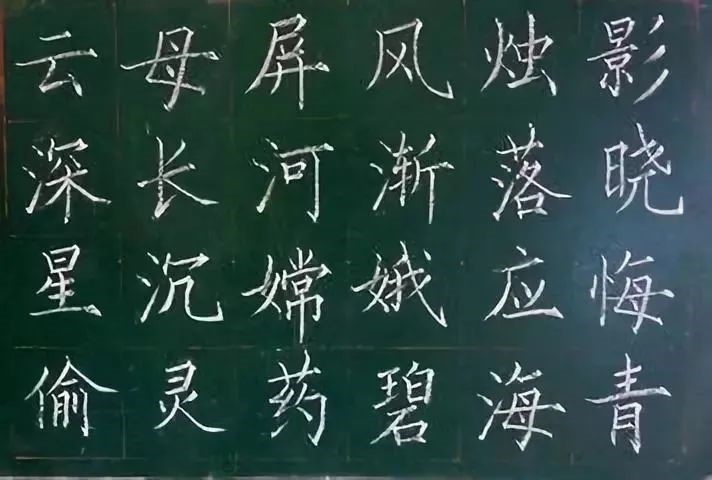 云母屏风烛影
深长河渐落晓
星沉嫦娥应悔
偷灵药碧海青